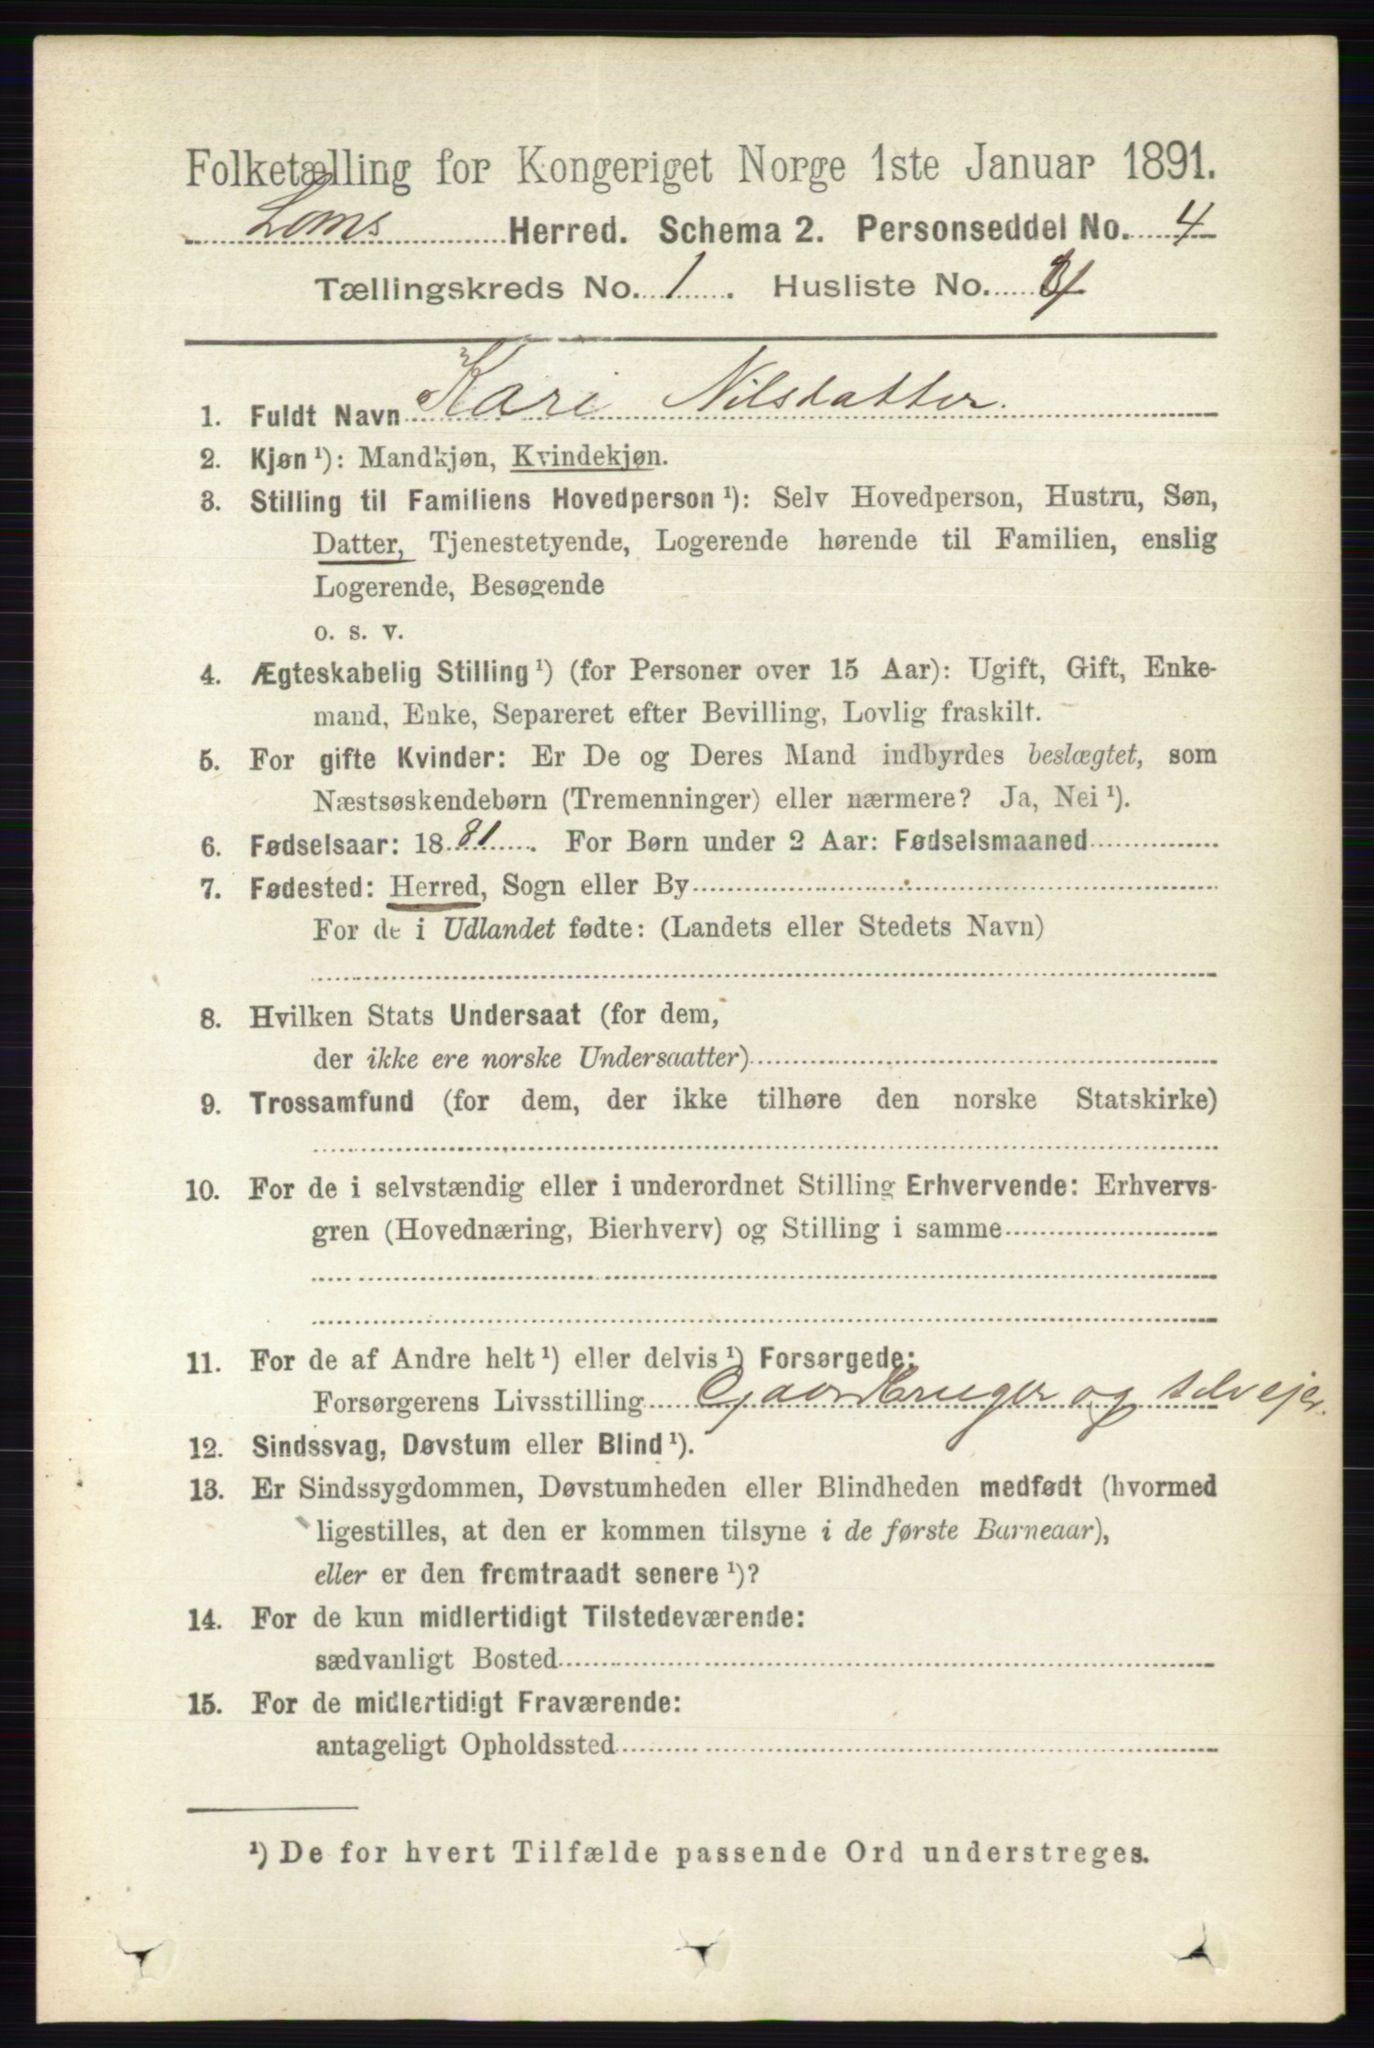 Folketælling for Kongeriget Norge 1ste Januar 1891.
Loms Herred. Schema 2. Personseddel No. 4
Tællingskreds No. 1. Husliste No.
1. Fuldt Navn Kari Nilsdatter.
2. Kjøn¹): Mandkjøn, Kvindekjøn.
3. Stilling til Familiens Hovedperson¹): Selv Hovedperson, Hustru, Søn,
Datter, Tjenestetyende, Logerende hørende til Familien, enslig
Logerende, Besøgende
o. s. v.
4. Ægteskabelig Stilling¹) (for Personer over 15 Aar): Ugift, Gift, Enke-
mand, Enke, Separeret efter Bevilling, Lovlig fraskilt.
5. For gifte Kvinder: Er De og Deres Mand indbyrdes beslægtet, som
Næstsøskendebørn (Tremenninger) eller nærmere? Ja, Nei¹).
6. Fødselsaar: 1881. For Børn under 2 Aar: Fødselsmaaned
7. Fødested: Herred, Sogn eller By
For de i Udlandet fødte: (Landets eller Stedets Navn)
8. Hvilken Stats Undersaat (for dem,
der ikke ere norske Undersaatter)
9. Trossamfund (for dem, der ikke tilhøre den norske Statskirke)
10. For de i selvstændig eller i underordnet Stilling Erhvervende: Erhvervs-
gren (Hovednæring, Bierhverv) og Stilling i samme
11. For de af Andre helt¹) eller delvis¹) Forsørgede:
Forsørgerens Livsstilling Gaardbruger og selvejer.
12. Sindssvag, Døvstum eller Blind¹).
13. Er Sindssygdommen, Døvstumheden eller Blindheden medfødt (hvormed
ligestilles, at den er kommen tilsyne i de første Barneaar),
eller er den fremtraadt senere¹)?
14. For de kun midlertidigt Tilstedeværende:
sædvanligt Bosted
15. For de midlertidigt Fraværende:
antageligt Opholdssted
¹) De for hvert Tilfælde passende Ord understreges.